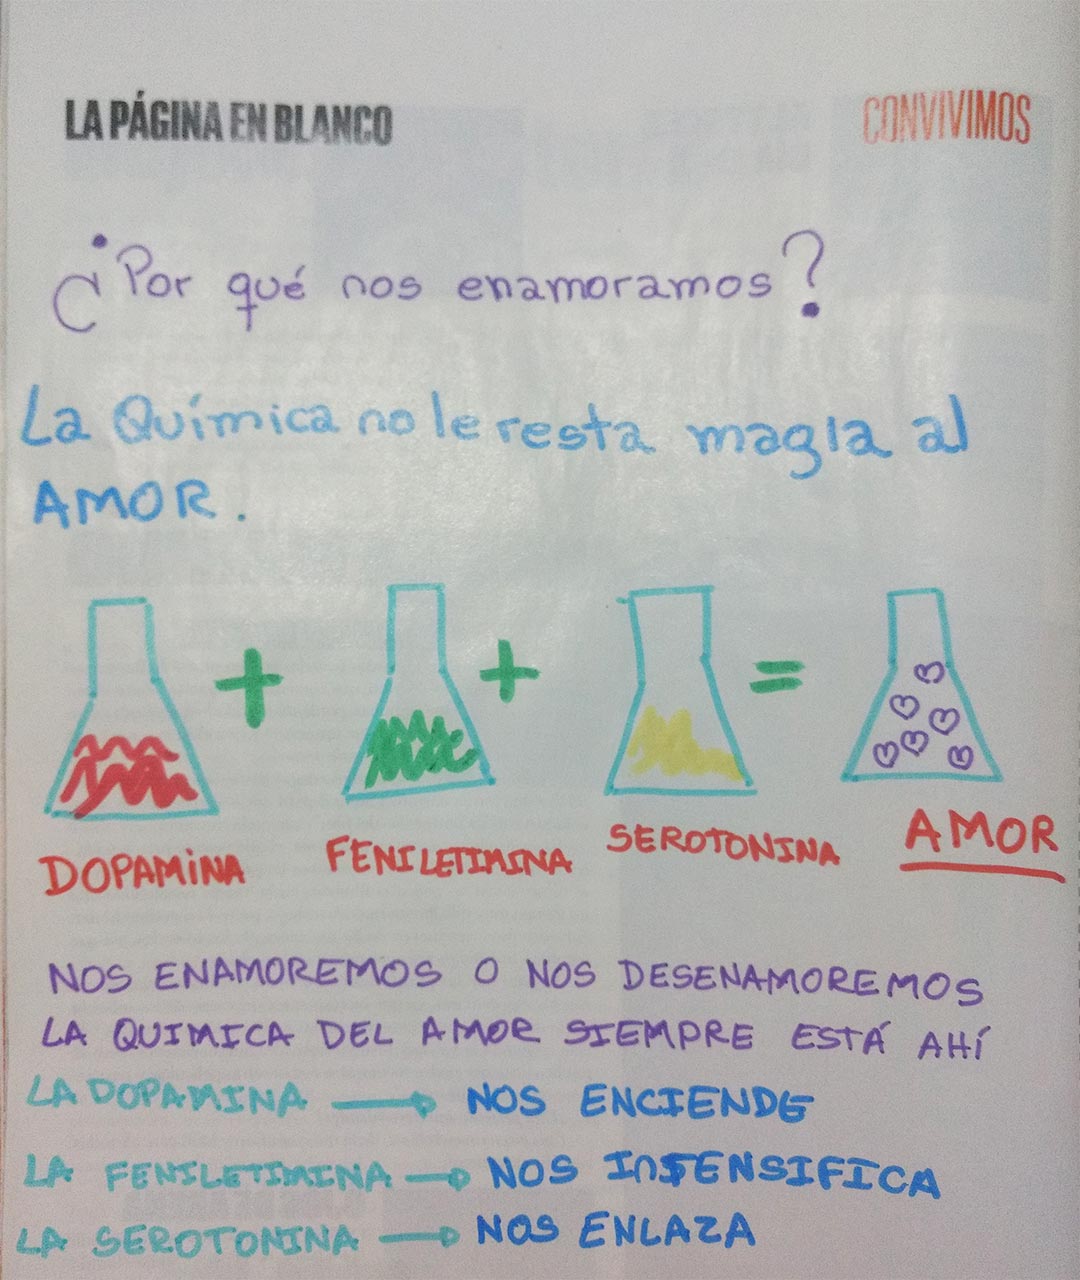 LA PÁGINA EN BLANCO CONVIVIMOS
¿Por qué nos enamoramos?
La Química no le resta magia al
AMOR.
+ + =
DOPAMINA FENILETIMINA SEROTONINA AMOR
NOS ENAMOREMOS O NOS DESENAMOREMOS
LA QUIMICA DEL AMOR SIEMPRE ESTÁ AHÍ
LA DOPAMINA → NOS ENCIENDE
LA FENILETIMINA → NOS INTENSIFICA
LA SEROTONINA → NOS ENLAZA